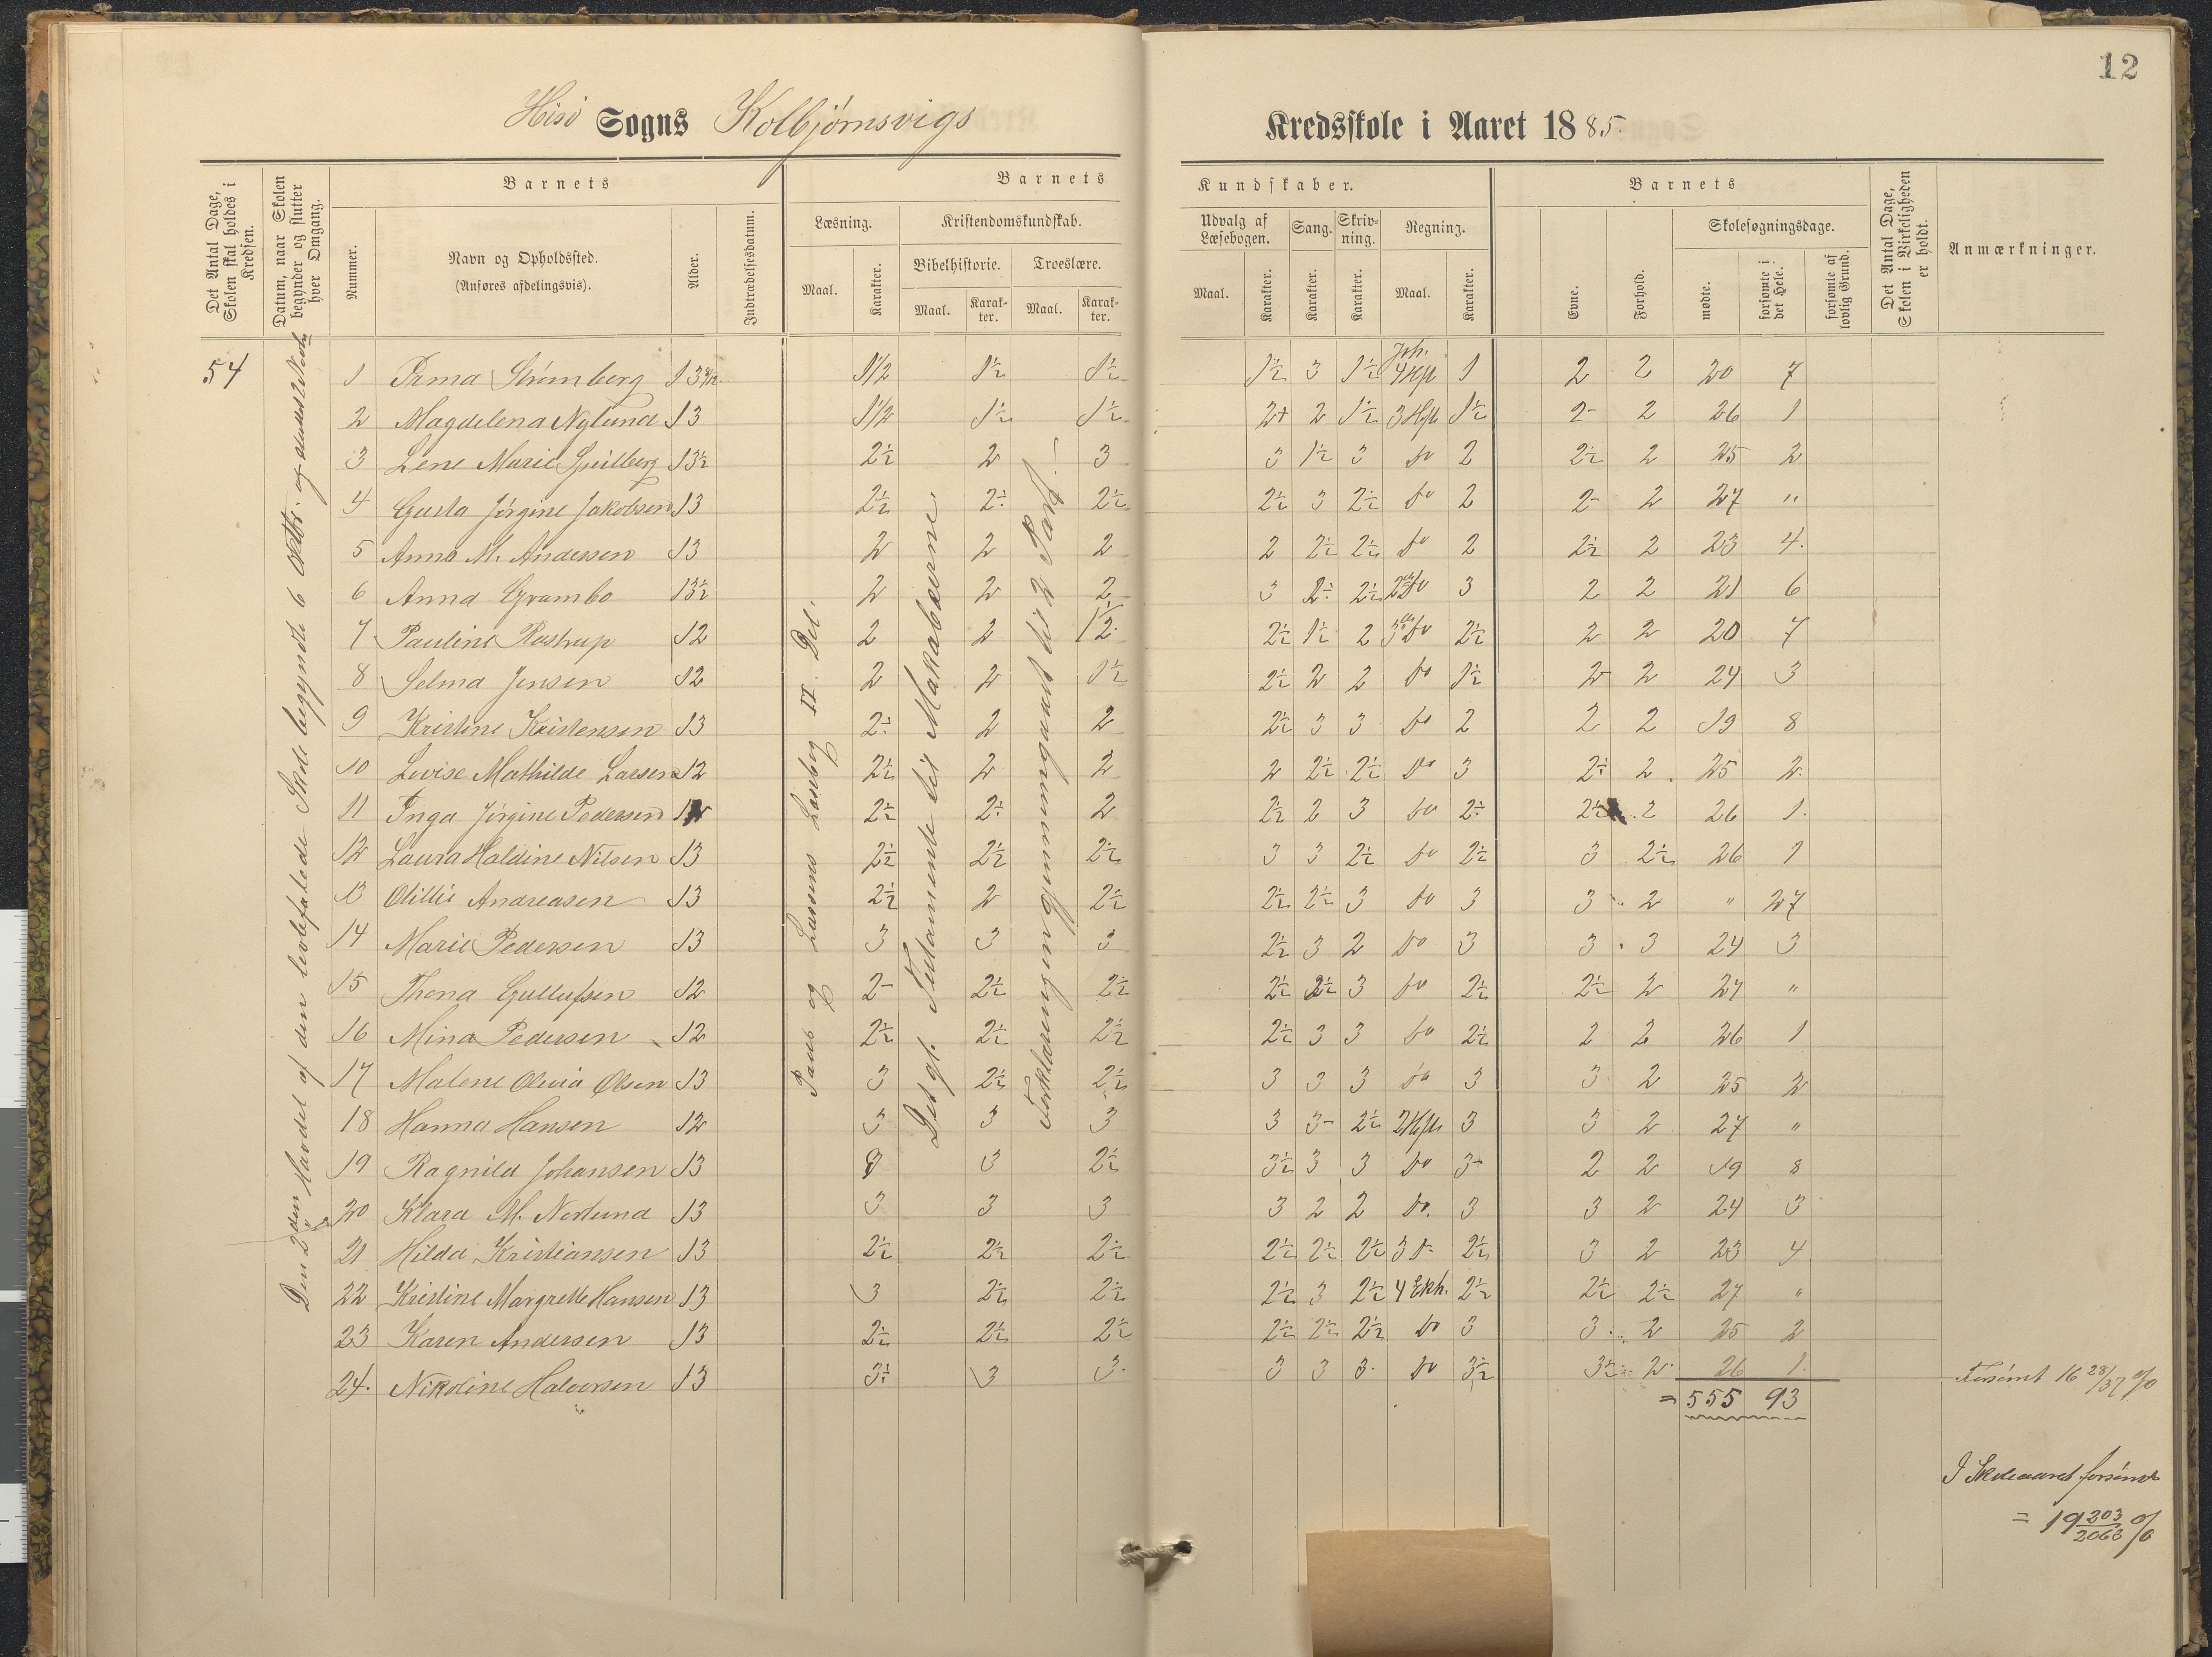 12
Hisö Sogns Kolbjörnsvigs Kredsskole i Aaret 1885.
Det Antal Dage, Skolen skal holdes i Kredsen.
Datum, naar Skolen begynder og slutter hver Omgang.
Barnets
Nummer.
Navn og Opholdssted.
(Anføres afdelingsvis).
Alder.
Indtrædelsesdatum.
Barnets Kundskaber.
Læsning.
Maal.
Karakter.
Kristendomskundskab.
Bibelhistorie.
Maal.
Karakter.
Troeslære.
Maal.
Karakter.
Udvalg af Læsebogen.
Maal.
Karakter.
Sang.
Karakter.
Skrivning.
Karakter.
Regning.
Maal.
Karakter.
Barnets
Evne.
Forhold.
Skolesøgningsdage.
mødte.
forsømte i det Hele.
forsømte af lovlig Grund.
Det Antal Dage, Skolen i Virkeligheden er holdt.
Anmærkninger.
54
Skole begyndte 6 Octbr. og
Læsebog II Del.
Det gl. Testamente til Makabæerne.
Forklaringen gjennemgaaet til 2 Part.
1 Irma Strömberg 13 1½ 1½ 1½ 1½ 3 1½ 1 2 2 20 7
2 Magdelena Nylund 13 1½ 1½ 1½ 2+ 2 1½ 3 Hft 1½ 2- 2 26 1
3 Lene Marie Spilberg 13½ 2½ 2 3 3 1½ 3 do 2 2½ 2 25 2
4 Gusta Jörgine Jakobsen 13 2½ 2÷ 2½ 2½ 3 2½ do 2 2- 2 27 "
5 Anna M. Andersen 13 2 2 2 2 2½ 2½ do 2 2½ 2 23 4.
6 Anna Grambo 13½ 2 2 2 3 2÷ 2½ 2 do 3 2 2 21 6
7 Pauline Rostrup 12 2 2 1½ 2½ 1½ 2 3 do 2½ 2 2 20 7
8 Selma Jensen 12 2 2 1½ 2½ 2 2 do 1½ 2 2 24 3
9 Kristine Kristensen 13 2÷ 2 2 2½ 3 3 do 2 2 2 19 8
10 Lovise Mathilde Larsen 12 2½ 2 2 2 2½ 2½ do 3 2÷ 2 25 2.
11 Inga Jörgine Pedersen 2½ 2÷ 2 2½ 2 3 do 2÷ 2½ 2 26 1.
12 Laura Haldine Nilsen 13 2½ 2½ 2½ 3 3 2½ do 2½ 3 2½ 26 1
13 Otillie Andreasen 13 2½ 2 2½ 2½ 2½ 3 do 3 3 2 " 27
14 Marie Pedersen 13 3 3 3 2½ 3 2 do 3 3 3 24 3
15 Thona Gullufsen 12 2- 2½ 2½ 2½ 2½ 3 do 2½ 2½ 2 27 "
16 Mina Pedersen 12 2½ 2½ 2½ 2½ 3 3 do 2½ 2 2 26 1
17 Malene Olivia Olsen 13 3 2½ 2½ 3 3 3 do 3 3 2 25 2
18 Hanna Hansen 12 3 3 3 3 3- 2½ 2 Hft 3 3 2 27 "
19 Ragnild Johansen 13 3 2½ 3½ 3 3 do 3- 2 2 19 8
20 Klara M. Norlund 13 3 3 3 3 2 2 do. 3 3 2 24 3
21 Hilda Kristiansen 13 2½ 2½ 2½ 2½ 2½ 2½ 3 D- 2½ 3 2 23 4
22 Kristine Margrethe Hansen 13 3 2½ 2½ 2½ 3 2½ 4 Ekh. 2½ 2½ 2½ 27 "
23 Karen Andersen 13 2½ 2½ 2½ 2½ 2½ 2½ do 3 3 2 25 2
24. Nikoline Halvorsen 13 3÷ 3 3. 3 3 3. do 3½ 3½ 2 26 1.
= 555 93
Forsömt 16 28/37 %
I Skoleaaret forsömt
= 19 203/2063 %